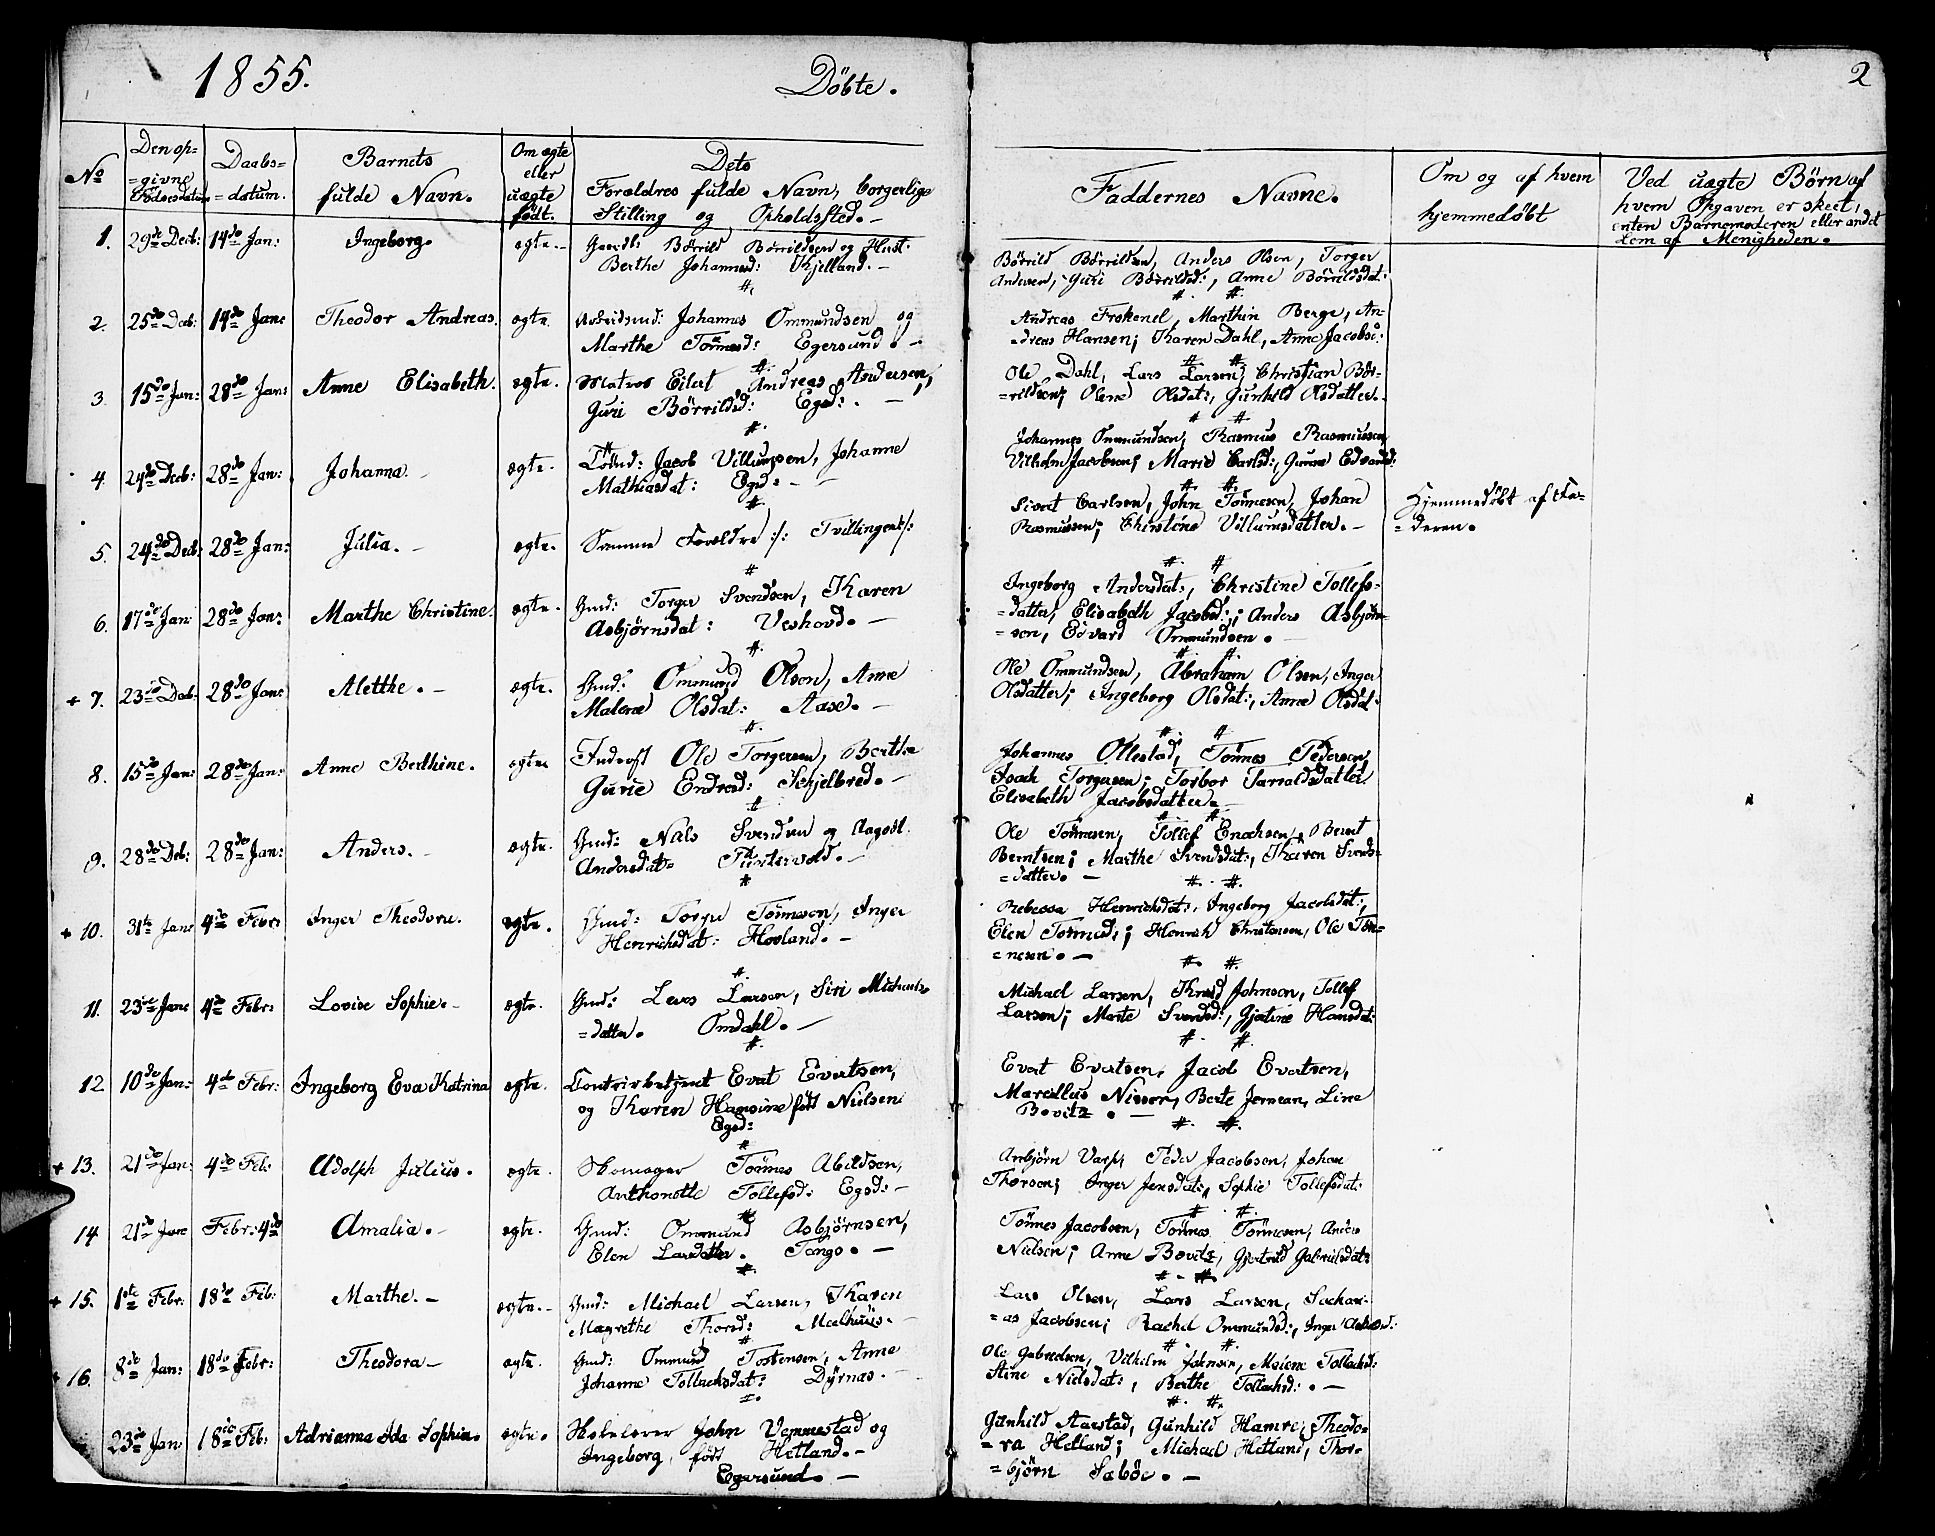 1855.
Döbte.
2
No
Den op=
=givne
Födselsdatum
Daabs=
=datum.
Barnets
fulde Navn.
Om egte
eller
uægte
født.
Dets
Forældres fulde Navn, borgerlige
Stilling og Opholdsfted. -
Faddernes Navne.
Om og af hvem
hjemmedøbt
Ved uægte Børn af
hvem Opgaven er skeet,
enten Barnemoderen eller andet
Lem af Menigheden.
1. 29de Decb: 14de Jan: Ingeborg. egte. - Börrild Börrildsen og Hust:
Berthe Johannesd: Kjelland. -
Börrild Börrildsen, Anders Olsen, Torger
Andersen, Guri Börrildsd:, Anne Börrildsdat:
2. 25de Decb: 14de Jan: Theodor Andreas. egte. Arbeidsmd: Johannes Ommundsen og
Marthe Tönnesd: Egersund. -
Andreas Marthin Berge, An=
dreas Hansen; Karen Dahl, Anne Jacobsd:
3. 15de Jan: 28de Jan: Anne Elisabeth. egte. Matros Eilert Andreas Andersen,
Guri Börrildsd: Egsd: . -
Ole Dahl, Lars Larsen, Christian Bör=
=rildsen; Olene Olsdat:, Gunhild Olsdatter.
4. 24de Decb: 28de Jan: Johanna. - egte. Jacob Villumsen, Johanne
Mathiasdat: Egsd: - -
Johannes Ommundsen, Rasmus Rasmussen,
Vilhelm Jacobsen; Marie Carlsd:, Edvardsd:
5. 24de Decb: 28de Jan: Julia. - egte. Samme Forældre :/: Tvillinger :/:
Sivert Carlsen, John Tönnesen, Johan
Rasmussen; Christine Villumsdatter. -
Hjemmedöbt af Fa=
=deren.
6. 17de Jan: 28de Jan: Marthe Christine. egte. Gmd: Torger Svendsen, Karen
Asbjørnsdat: Veshovd. -
Ingeborg Andersdat:, Christine Tollefs=
=datter, Elisabeth Jacobsd:; Anders Asbjørn=
=sen, Edvard Ommundsen.
+ 7. 23de Decb: 28de Jan: Alethe. - egte. Gmd: Ommund Olsen, Anne
Malene Olsdat: Aase. -
Ole Ommundsen, Abraham Olsen, Inger
Olsdatter; Ingeborg Olsdat:, Anne Olsdat:
8. 15de Jan: 28de Jan: Anne Berthine. egte Inderst Ole Torgersen, Berthe
Gurie Endresd: Skjelbred. -
Johannes Ollestad, Tönnes Pedersen,
Isach Torgersen; Torbor Tarvaldsdatter
Elisabeth Jacobsdatter. -
9. 28de Deb: 28de Jan: Anders. - egte. Gmd: Nils Svendsen og
Andersdat:
Ole Tönnesen, Tollef Enochsen, Bernt
Berntsen; Marthe Svendsdat:, Karen Svends=
=datter. -
+ 10. 31te Jan: 4de Febr: Inger Theodora. egte. Gmd: Torger Tönnesen, Inger
Henrichsdat: Hovland. -
Rebecca Henrichsdat:, Ingeborg Jacobsdat:,
Elen Tönnesd:; Henrich Christensen, Ole Tön=
=nesen. -
11. 23de Jan: 4de Febr: Lovise Sophie. - egte. Gmd: Lars Larsen, Siri Michaels=
=datter. Omdahl. -
Michael Larsen, Knud Johnsen, Tollef
Larsen; Marte Svendsd:, Gjertine Hansdat:
12 10de Jan: 4de Febr: Ingeborg Eva Katrina egte. Evert Evertsen,
og Karen Hansine født Nielsen
Egsd:
Evert Evertsen, Jacob Evertsen,
Marcillius Nisser, Berte Jernean, Line
Bovitz. -
+ 13. 21de Jan: 4de Feb: Adolph Julius. egte. Skomager Tönnes Abeldsen,
Anthonette Tollefsd: Egsd: -
Anbjörn Peder Jacobsen, Johan
Thorsen; Inger Jensdat:, Sophie Tollefsdat:
14 21de Jan: Febr: 4de Amalia. - egte. Gmd: Ommund Asbjørnsen,
Elen Larsdatter. Tengs. -
Tönnes Jacobsen, Tönnes Tönnesen, Anders
Nielsen; Anne Bovitz, Gjertrud Gabrielsdat:
+ 15. 1ste Febr: 18de Feb: Marthe. - egte. - Gmd: Michael Larsen, Karen
Magrethe Thorsd: Mælhuus. -
Lars Olsen, Lars Larsen, Sachari=
=as Jacobsen; Rachel Ommundsd:, Inger
+ 16. 8de Jan: 18de Febr: Theodora - egte. Gmd: Ommund Tostensen, Anne
Johanne Tollachsdat: Dyrnæs. -
Ole Gabrielsen, Vilhelm Johnsen, Malene Tollachsd:
Stine Nielsdat:, Berthe Tollachsd: . -
23de Jan: 18de Feb: Adrianna Ida Sophia. egte. John Vemmestad og
Ingeborg, født Hetland. -
Egersund. -
Gunhild Aarstad, Gunhild Hamre, Theodo=
=ra Hetland; Michael Hetland, Thor=
=bjørn Sæbøe. -